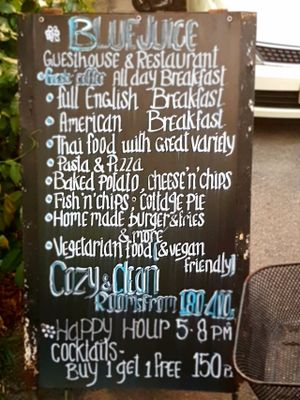 BLUE JUICE
GUESTHOUSE & RESTAURANT
• Fresh coffee All day Breakfast
• full English Breakfast
• American Breakfast
• Thai food with great variety
• Pasta & Pizza
• Baked potato, cheese'n'chips
• Fish'n'chips, Cottage Pie
• Home made burger & fries
& more
• Vegetarian food & vegan
friendly!
Cozy & Clean
ROOMS from 180-400.-
HAPPY HOUR 5-8 PM
COCKTAILS-
BUY 1 get 1 FREE 150.-